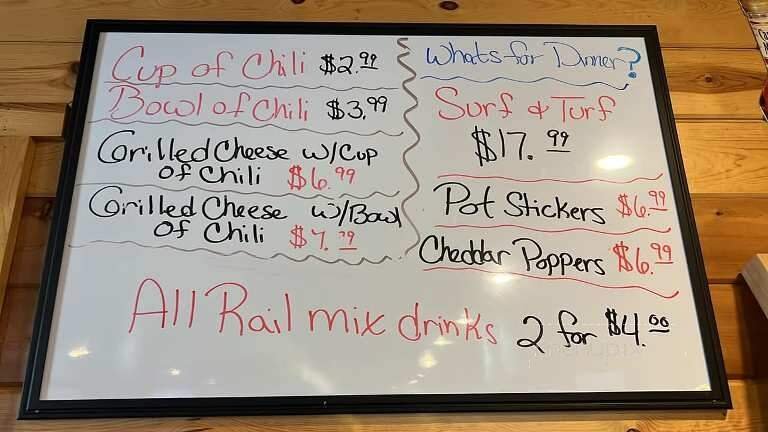 Cup of Chili $2.99
Bowl of Chili $3.99
Grilled Cheese w/Cup
of Chili $6.99
Grilled Cheese w/Bowl
of Chili $7.79
Whats for Dinner?
Surf & Turf
$17.99
Pot Stickers $6.99
Cheddar Poppers $6.99
All Rail mix drinks 2 for $4.00